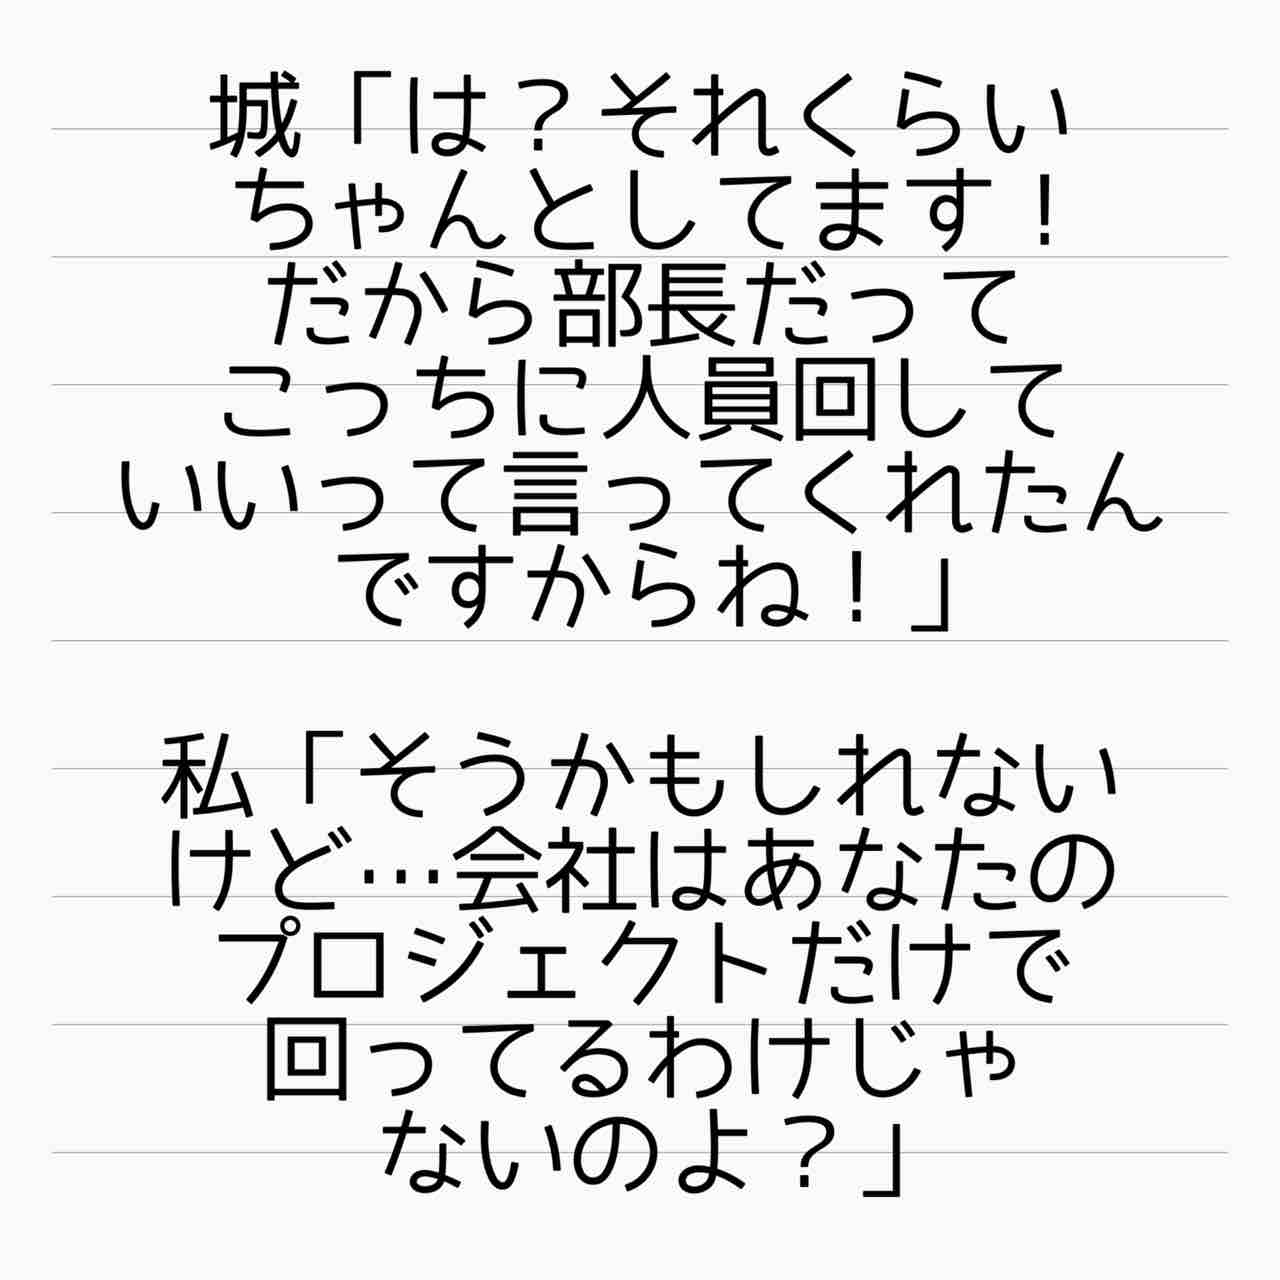 城「は？それくらい
ちゃんとしてます！
だから部長だって
こっちに人員回して
いいって言ってくれたん
ですからね！」
私「そうかもしれない
けど…会社はあなたの
プロジェクトだけで
回ってるわけじゃ
ないのよ？」